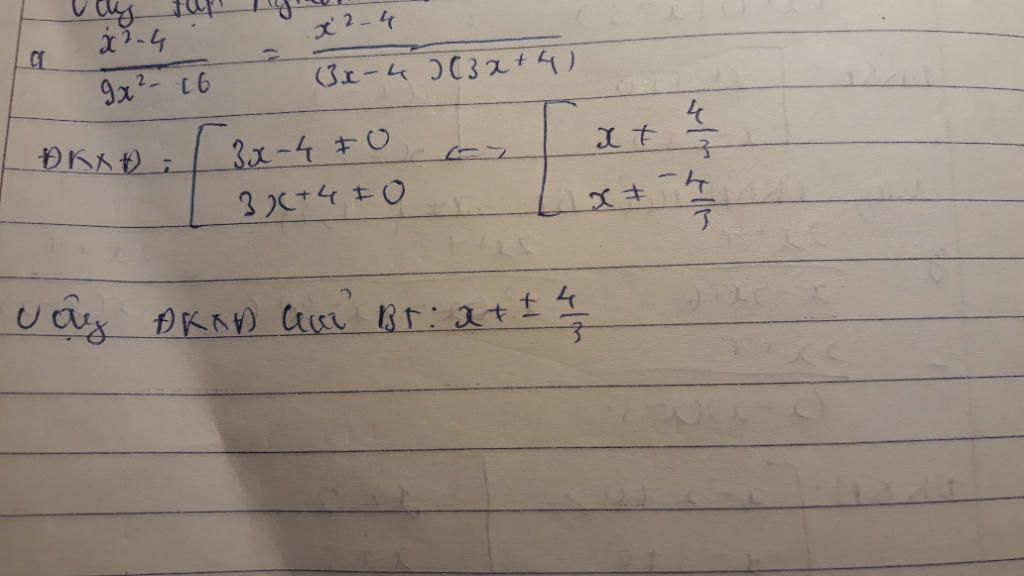 Vậy tập nghiệm
a x²-4 / 9x²-16 = x²-4 / (3x-4)(3x+4)
ĐKXĐ: [ 3x-4 ≠ 0 <-> [ x ≠ 4/3
3x+4 ≠ 0 x ≠ -4/3
Vậy ĐKXĐ của BT: x ≠ ± 4/3